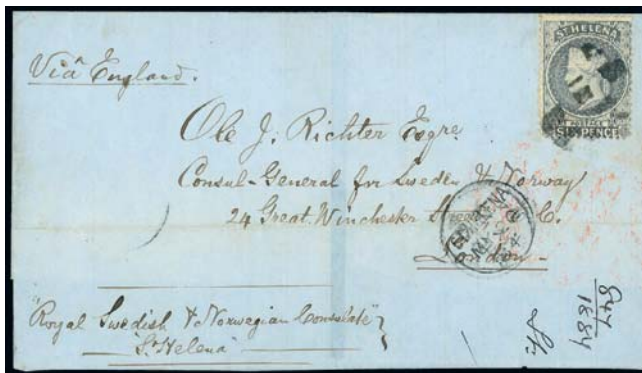 ST HELENA
POSTAGE
SIX PENCE
Viâ England.
Ole J. Richter Esqre
Consul-General for Sweden & Norway
24 Great Winchester Street E. C.
London
ST HELENA
"Royal Swedish & Norwegian Consulate"
"St Helena"
847
1884